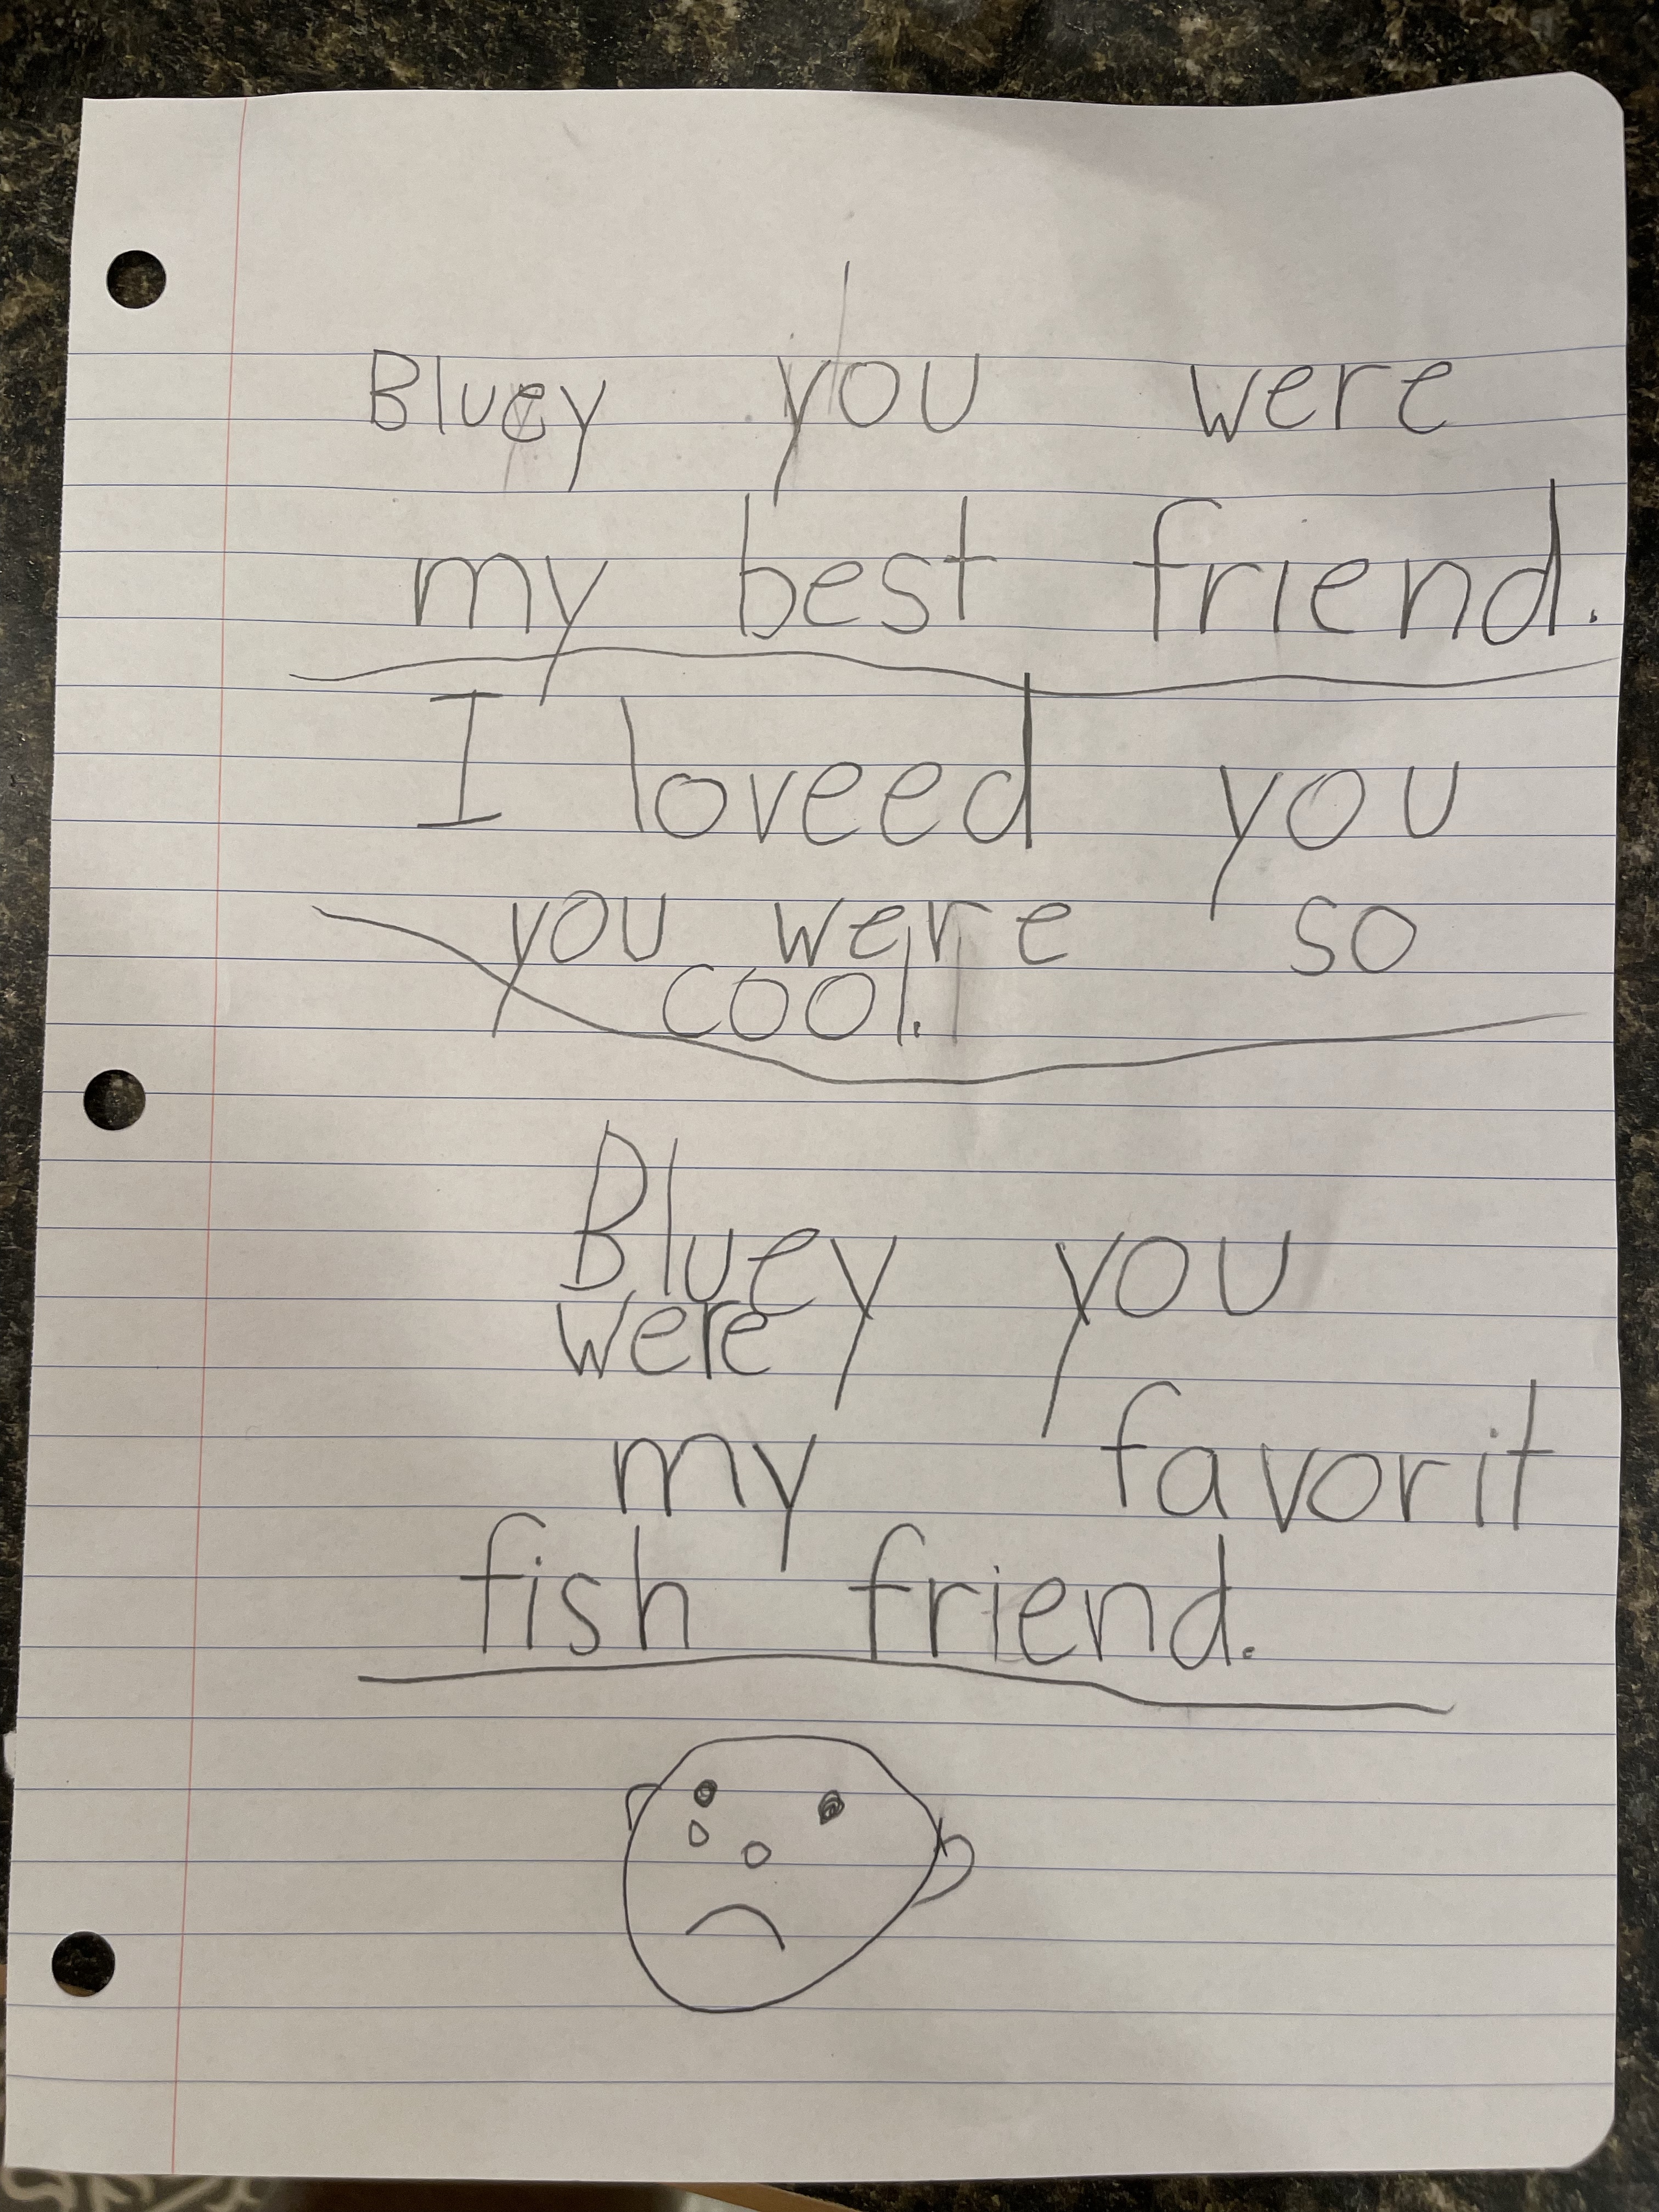 Bluey you were
my best friend.
I loveed you
you were so
cool.
Bluey you
were
my favorit
fish friend.